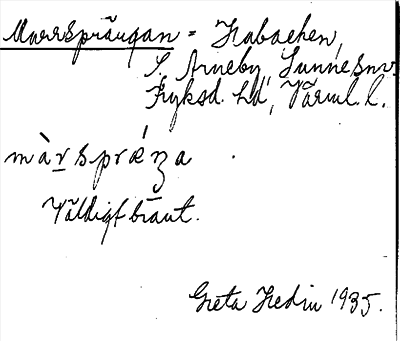 Marrsprängan = Habacken,
S. Arneby, Sunne snr.
Fryksd. hd, Värml. l.
màr̲sprǽŋa
Väldigt brant.
Greta Hedin 1935.